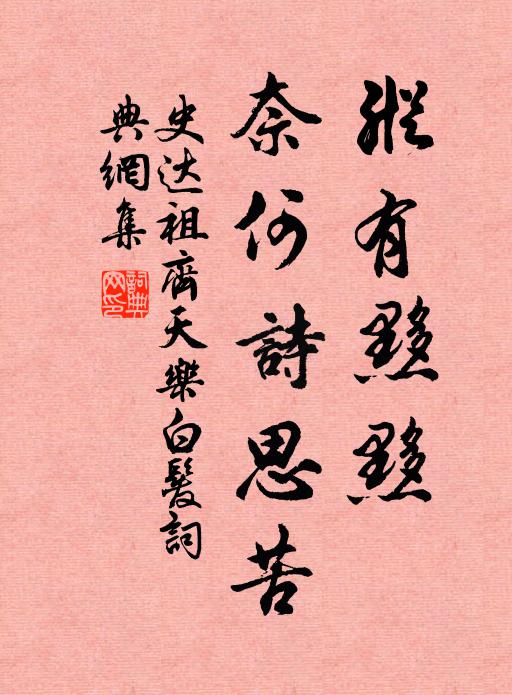 縱有黟黟
奈何詩思苦
史达祖齊天樂白髮詞
典網集
詞典
网印